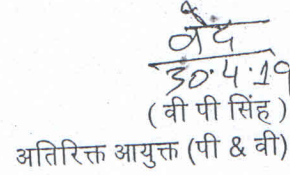 30.4.19
(वी पी सिंह)
अतिरिक्त आयुक्त (पी & वी)